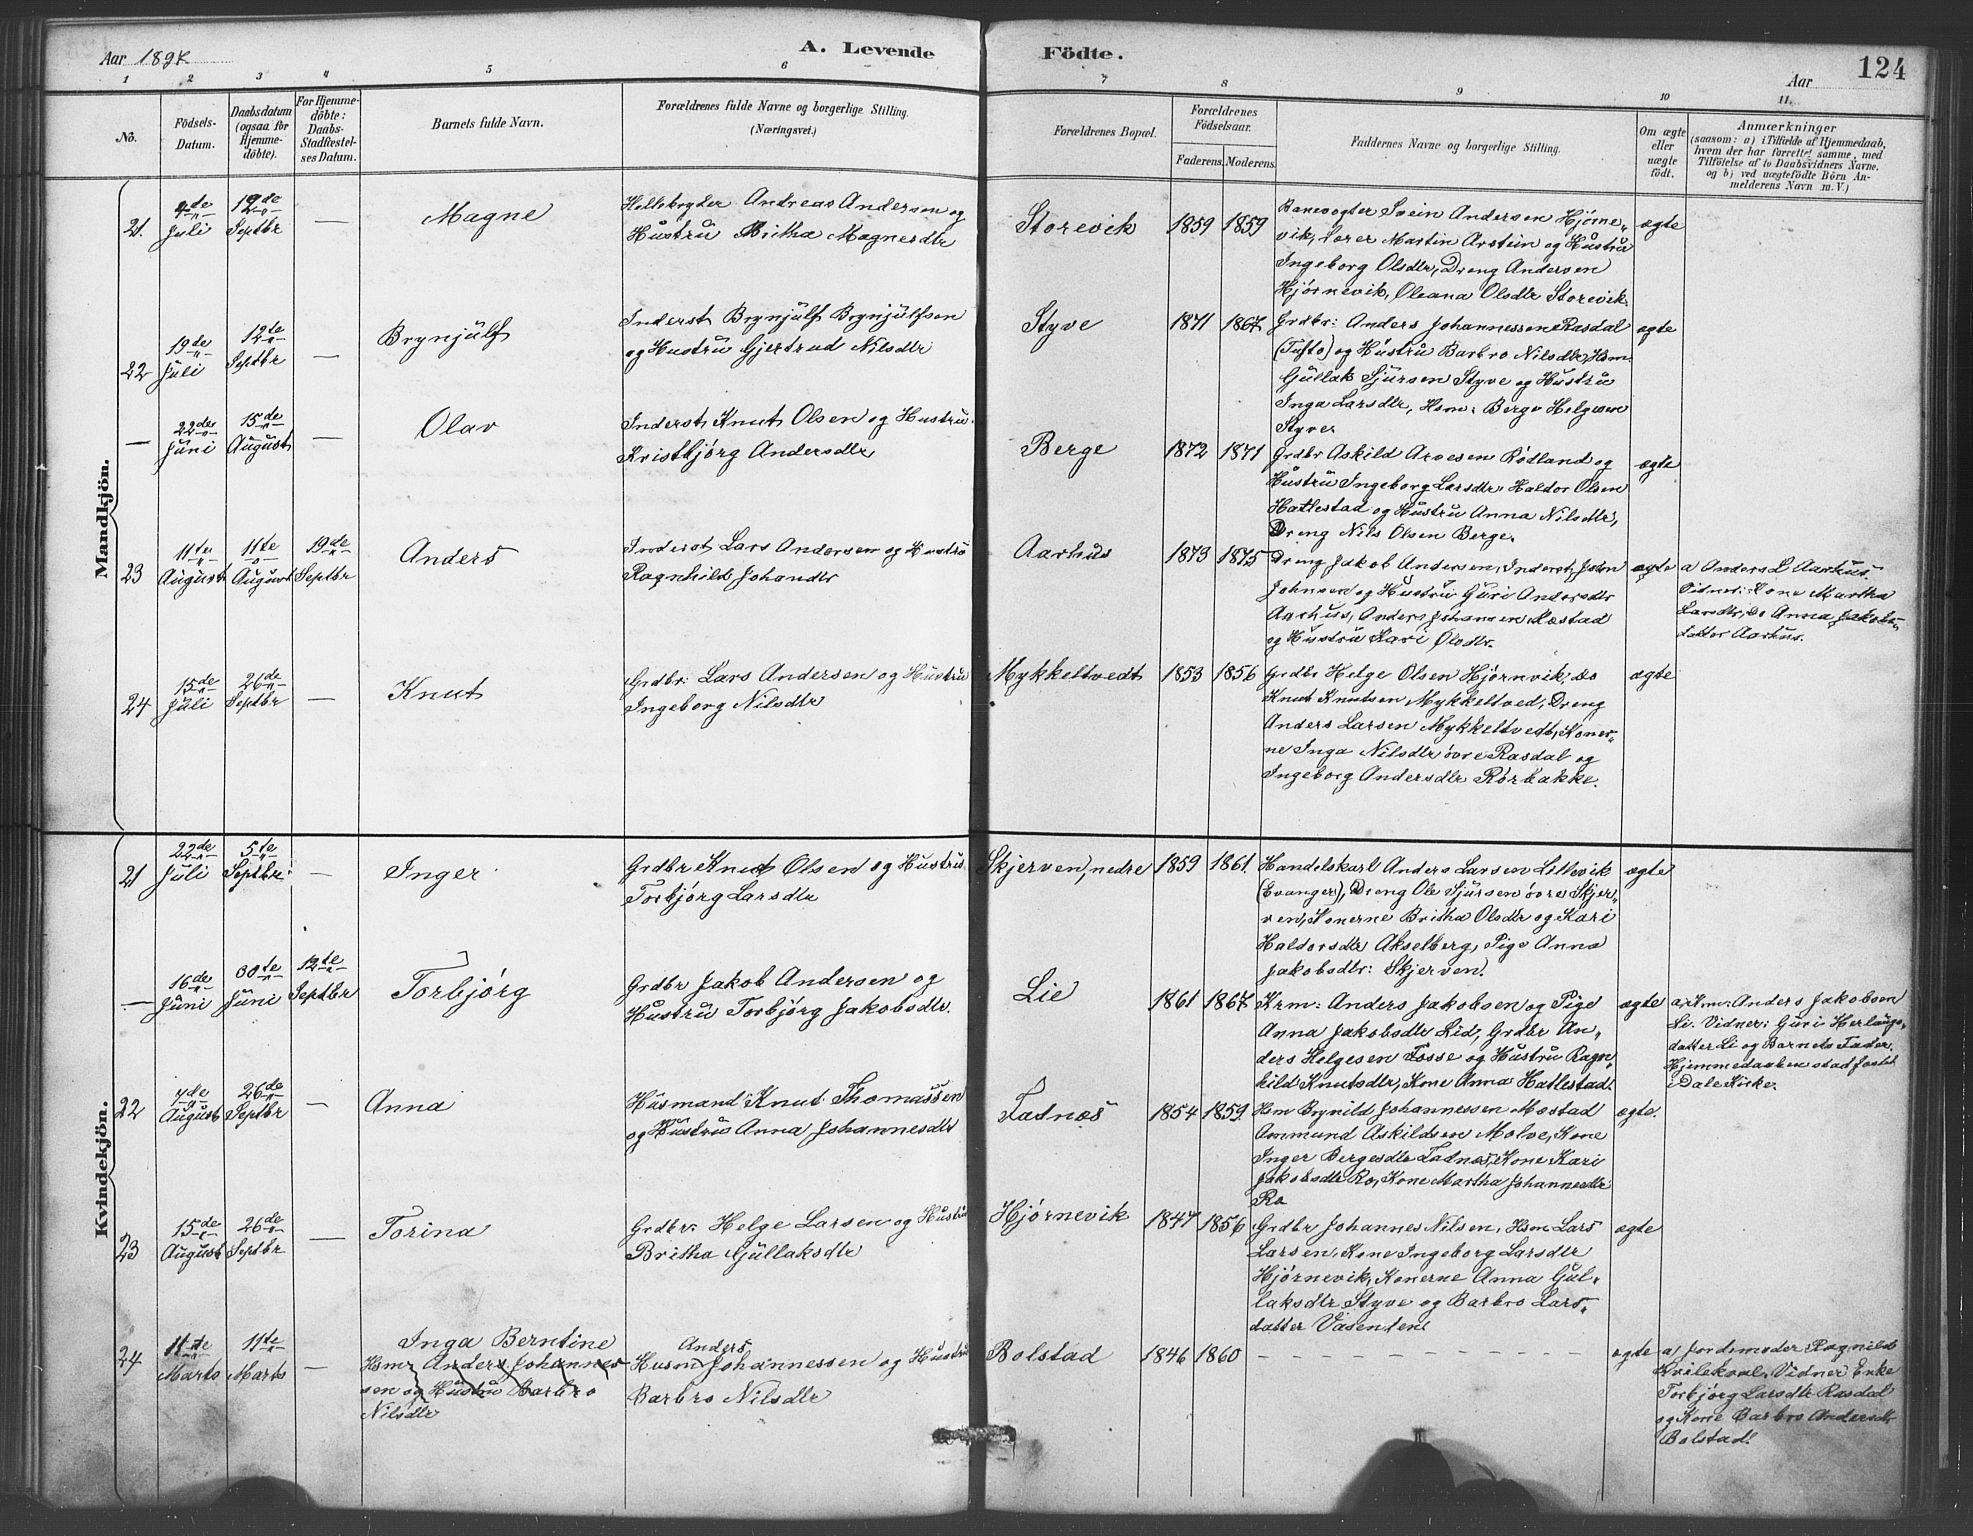 Aar 1897
A. Levende
Födte.
Aar
124
1 2 3 4 5 6 7 8 9 10 11.
No.
Födsels-
Datum.
Daabsdatum
(ogsaa for
Hjemme-
döbte).
For Hjemme-
döbte:
Daabs-
Stadfæstel-
ses Datum.
Barnets fulde Navn.
Forældrenes fulde Navne og borgerlige Stilling.
(Næringsvei.)
Forældrenes Bopæl.
Forældrenes
Födselsaar.
Faderens. Moderens.
Faddernes Navne og borgerlige Stilling.
Om ægte
eller
uægte
födt.
Anmærkninger
(saasom: a) i Tilfælde af Hjemmedaab,
hvem der har forrettet samme, med
Tilföielse af to Daabsvidners Navne.
og b) ved uægtefödte Börn An-
melderens Navn m. V.)
Mandkjön.
21. Juli 19de Septbr — Magne
Andreas Andersen og
Hustru Britha Magnesdtr
Storevik 1859 1859
Banevogter Svein Andersen Hjørne-
vik, Lærer Martin Arstein og Hustru
Ingeborg Olsdtr, Dreng Andersen
Hjørnevik, Oleana Olsdtr Storevik.
ægte
22 19de Juli 12te Septbr — Brynjulf
Inderst Brynjulf Brynjulfsen
og Hustru Gjertrud Nilsdtr
Styve 1871 1867
Grdbr: Anders Johannessen Rasdal
(Tufto) og Hustru Barbro Nilsdtr, Hsm.
Gullak Sjursen Styve og Hustru
Inga Larsdtr, Hsm: Berge Helgesen
Styve
ægte
— 22de Juni 15de August — Olav
Inderst Knut Olsen og Hustru
Kristbjørg Andersdtr
Berge 1872 1871
Grdbr Askild Arvesen Rødland og
Hustru Ingeborg Larsdtr, Haldor Olsen
Hatlestad og Hustru Anna Nilsdtr,
Dreng Nils Olsen Berge.
ægte
23 11te August 11te August 19de Septbr Anders
Inderst Lars Andersen og Hustru
Ragnhild Johandtr
Aarhus 1873 1875
Dreng Jakob Andersen, Inderst John
Johnsen og Hustru Guri Andersdtr
Aarhus, Anders Johansen
og Hustru Kari Olsdtr.
ægte
a Anders L Aarhus.
Vidner: Kone Martha
Larsdtr, Do Anna Jakobs-
datter Aarhus.
24 15de Juli 26de Septbr — Knut
Grdbr: Lars Andersen og Hustru
Ingeborg Nilsdtr
Mykkeltvedt 1853 1856
Grdbr Helge Olsen Hjørnvik, do
Knut Knutsen Mykkeltved, Dreng
Anders Larsen Mykkeltvedt, Koner-
ne Inga Nilsdtr øvre Rasdal og
Ingeborg Andersdtr Rørbakke.
ægte
Kvindekjön.
21 22de Juli 5te Septbr — Inger
Grdbr Knut Olsen og Hustru
Torbjørg Larsdtr
Skjerven, nedre 1859 1861.
Handelskarl Anders Larsen Lillevik
(Evanger), Dreng Ole Sjursen øvre Skjer-
ven, Konerne Britha Olsdtr og Kari
Haldorsdtr Akselberg, Pige Anna
Jakobsdtr: Skjerven.
ægte
— 16de Juni 30te Juni 12te Septbr Torbjørg
Grdbr Jakob Andersen og
Hustru Torbjørg Jakobsdtr.
Lie 1861 1867
Krm: Anders Jakobsen og Pige
Anna Jakobsdtr Lid, Grdbr An-
ders Helgesen Fosse og Hustru Ragn-
hild Knutsdtr, Kone Anna Hatlestad.
ægte
a Krm: Anders Jakobsen
Li. Vidner: Guri Herlaugs-
datter Li og Barnets Fader.
Hjemmedaaben stadfæstet
i Dale Kirke.
22 August 26de Septbr — Anna
Husmand Knut Thomassen
og Hustru Anna Johannesdtr
Fadnæs 1854 1859.
Hsm Brynild Johannessen Mostad
Ammund Askildsen Molve, Kone
Inger Bergesdtr Fadnæs, Kone Kari
Jakobsdtr Ro, Kone Martha Johannesdtr
Ro
ægte.
23 15de August 26de Septbr — Torina
Grdbr: Helge Larsen og Hustru
Britha Gullaksdtr
Hjørnevik 1847 1856
Grdbr Johannes Nilsen, Hsm Lars
Larsen, Kone Ingeborg Larsdtr
Hjørnevik, Konerne Anna Gul-
laksdtr Styve og Barbro Lars-
datter Vasenden
ægte
24 11te Marts 11te Marts — Inga Berntine
Hsm: Anders Johannes-
sen og Hustru Barbro
Nilsdtr
Anders
Husm Johannessen og Hustru
Barbro Nilsdtr
Bolstad 1846 1860
— — — — — — — — —
ægte
a, Jordemoder Ragnild
Kvilekval. Vidner Enke
Torbjørg Larsdtr Rasdal
og Kone Barbro Andersdtr
Bolstad.